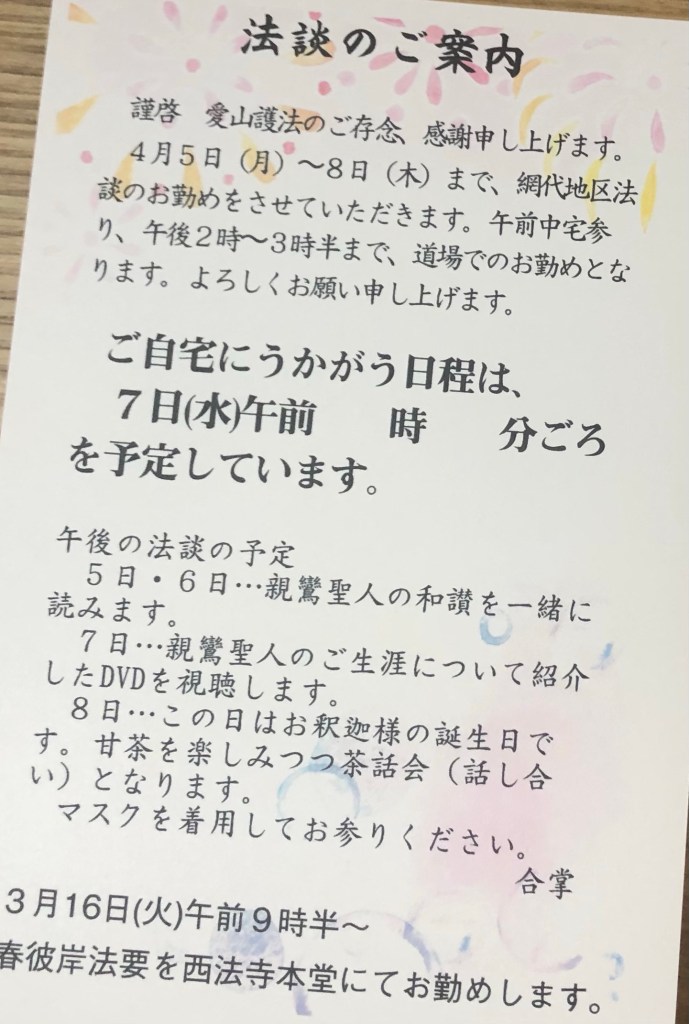 法談のご案内
謹啓　愛山護法のご存念、感謝申し上げます。
４月５日（月）～８日（木）まで、網代地区法
談のお勤めをさせていただきます。午前中宅参
り、午後２時～３時半まで、道場でのお勤めとな
ります。よろしくお願い申し上げます。
ご自宅にうかがう日程は、
７日(水)午前　　時　　分ごろ
を予定しています。
午後の法談の予定
５日・６日…親鸞聖人の和讃を一緒に
読みます。
７日…親鸞聖人のご生涯について紹介
したDVDを視聴します。
８日…この日はお釈迦様の誕生日で
す。甘茶を楽しみつつ茶話会（話し合
い）となります。
マスクを着用してお参りください。
合掌
３月16日(火)午前９時半～
春彼岸法要を西法寺本堂にてお勤めします。